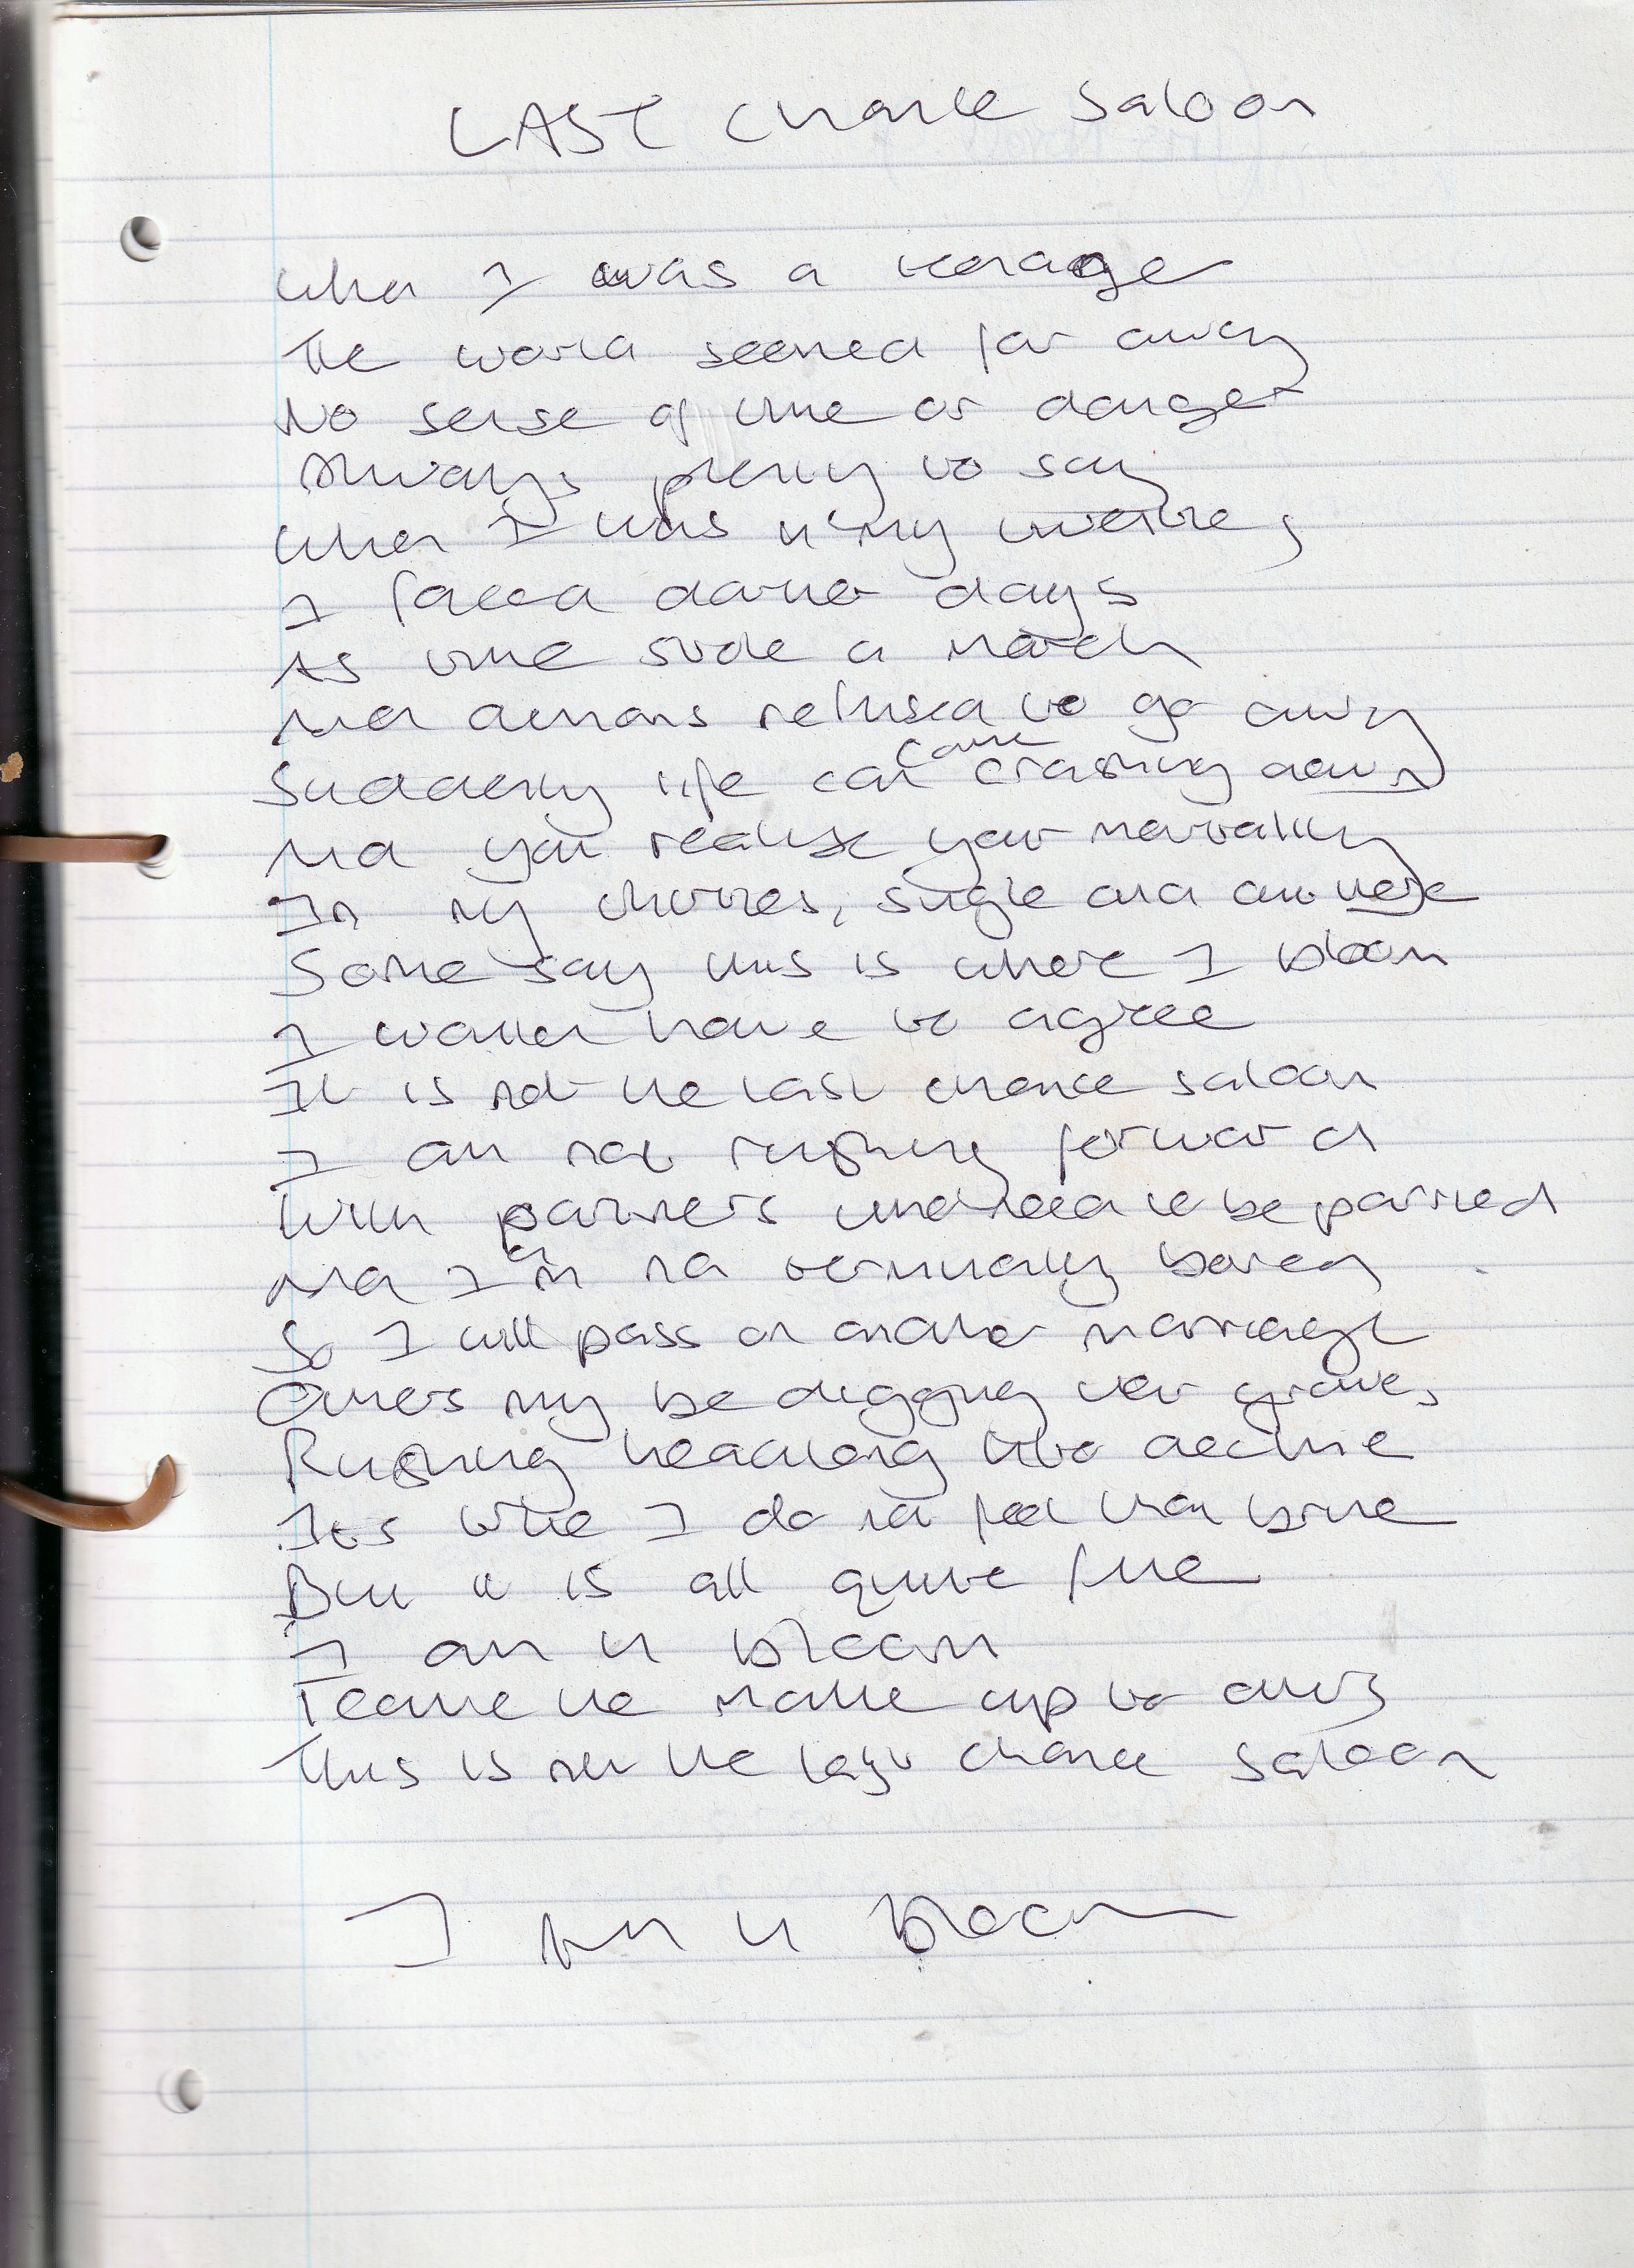 LAST Chance Saloon
When I was a teenager
The world seemed far away
No sense of time or danger
Always plenty to say
When I was in my twenties
I faced darker days
As time stole a march
And demons refused to go away
Suddenly life came crashing down
And you realise your mortality
In my thirties, single and
Some say this is where I bloom
I would have to agree
It is not the last chance saloon
I am not rushing forward
With partners to be parried
And I am not terminally bored
So I will pass on another marriage
Others my be digging their graves
Rushing headlong into decline
I do not feel
But it is all quite fine
I am in bloom
Leave the make up to
This is not the last chance saloon
I Am in bloom